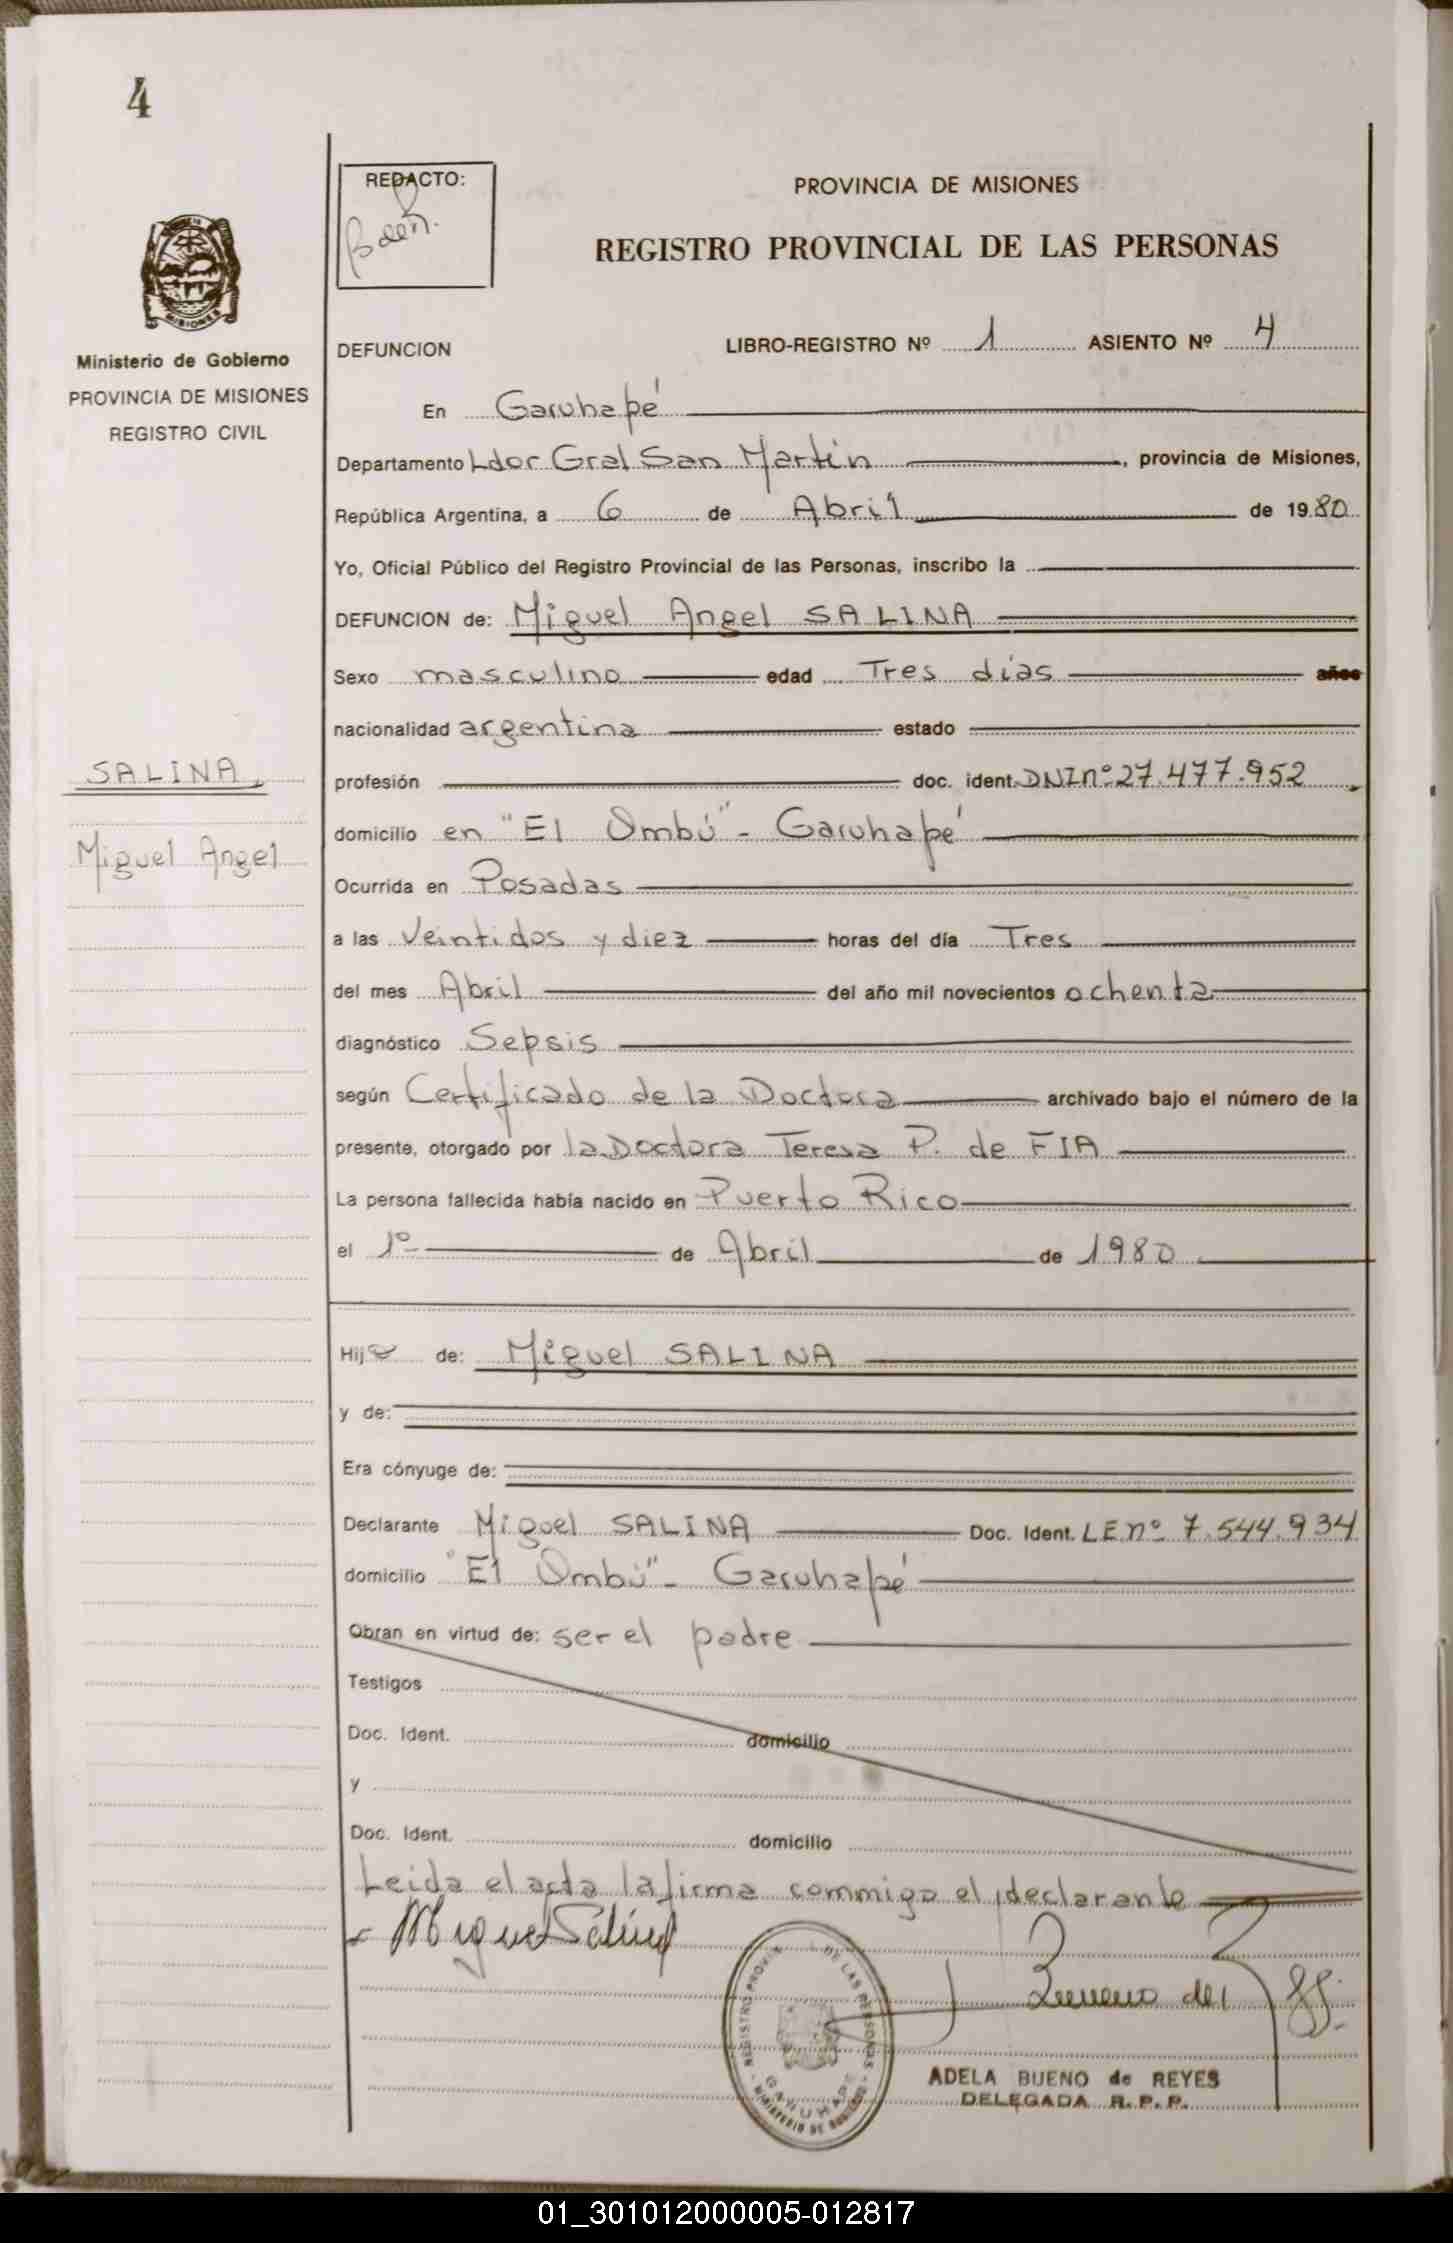 4
REDACTO:
PROVINCIA DE MISIONES
REGISTRO PROVINCIAL DE LAS PERSONAS
MISIONES
Ministerio de Gobierno
PROVINCIA DE MISIONES
REGISTRO CIVIL
DEFUNCION LIBRO-REGISTRO Nº 1 ASIENTO Nº 4
En Garuhapé
Departamento Ldor Gral San Martín, provincia de Misiones,
República Argentina, a 6 de Abril de 1980
Yo, Oficial Público del Registro Provincial de las Personas, inscribo la
DEFUNCION de: Miguel Angel SALINA
Sexo masculino edad Tres días años
nacionalidad argentina estado
SALINA,
Miguel Angel
profesión doc. ident. DNI nº 27.477.952
domicilio en "El Ombú" - Garuhapé
Ocurrida en Posadas
a las veintidos y diez horas del día Tres
del mes Abril del año mil novecientos ochenta
diagnóstico Sepsis
según Certificado de la Doctora archivado bajo el número de la
presente, otorgado por la Doctora Teresa P. de FIA
La persona fallecida había nacido en Puerto Rico
el 1º de Abril de 1980
Hijo de: Miguel SALINA
y de:
Era cónyuge de:
Declarante Miguel SALINA Doc. Ident. LE nº 7.544.934
domicilio "El Ombú" - Garuhapé
Obran en virtud de: ser el padre
Testigos
Doc. Ident. domicilio
y
Doc. Ident. domicilio
Leida el acta la firma commigo el declarante
Miguel Salina
Bueno de
REGISTRO PROVIN DE LAS PERSONAS
GARUHAPE
MINISTERIO DE GOBIERNO
ADELA BUENO de REYES
DELEGADA R.P.P.
01_301012000005-012817